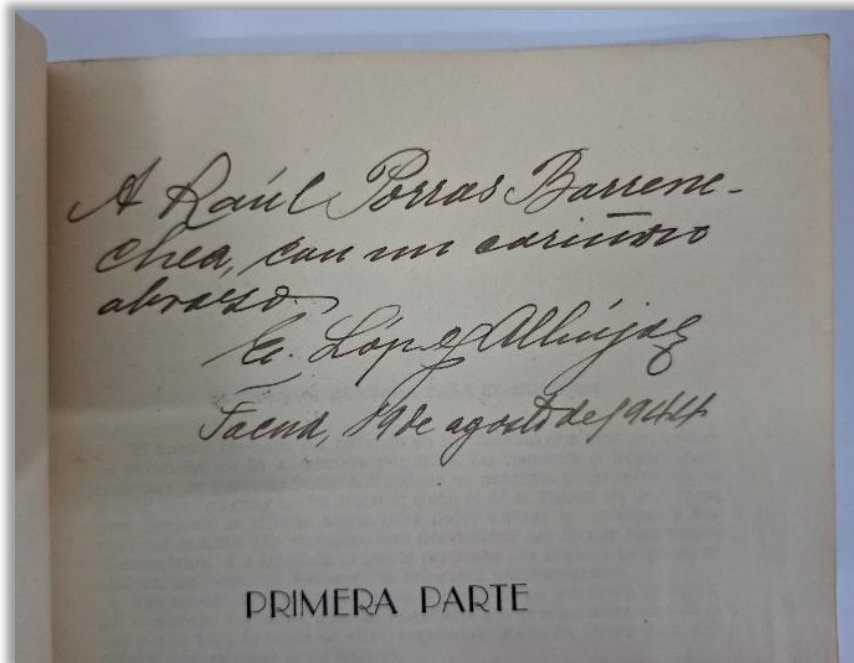 A Raúl Porras Barrene-
chea, con un cariñoso
abrazo.
E. López Albújar
Tacna, 19 de agosto de 1944
PRIMERA PARTE